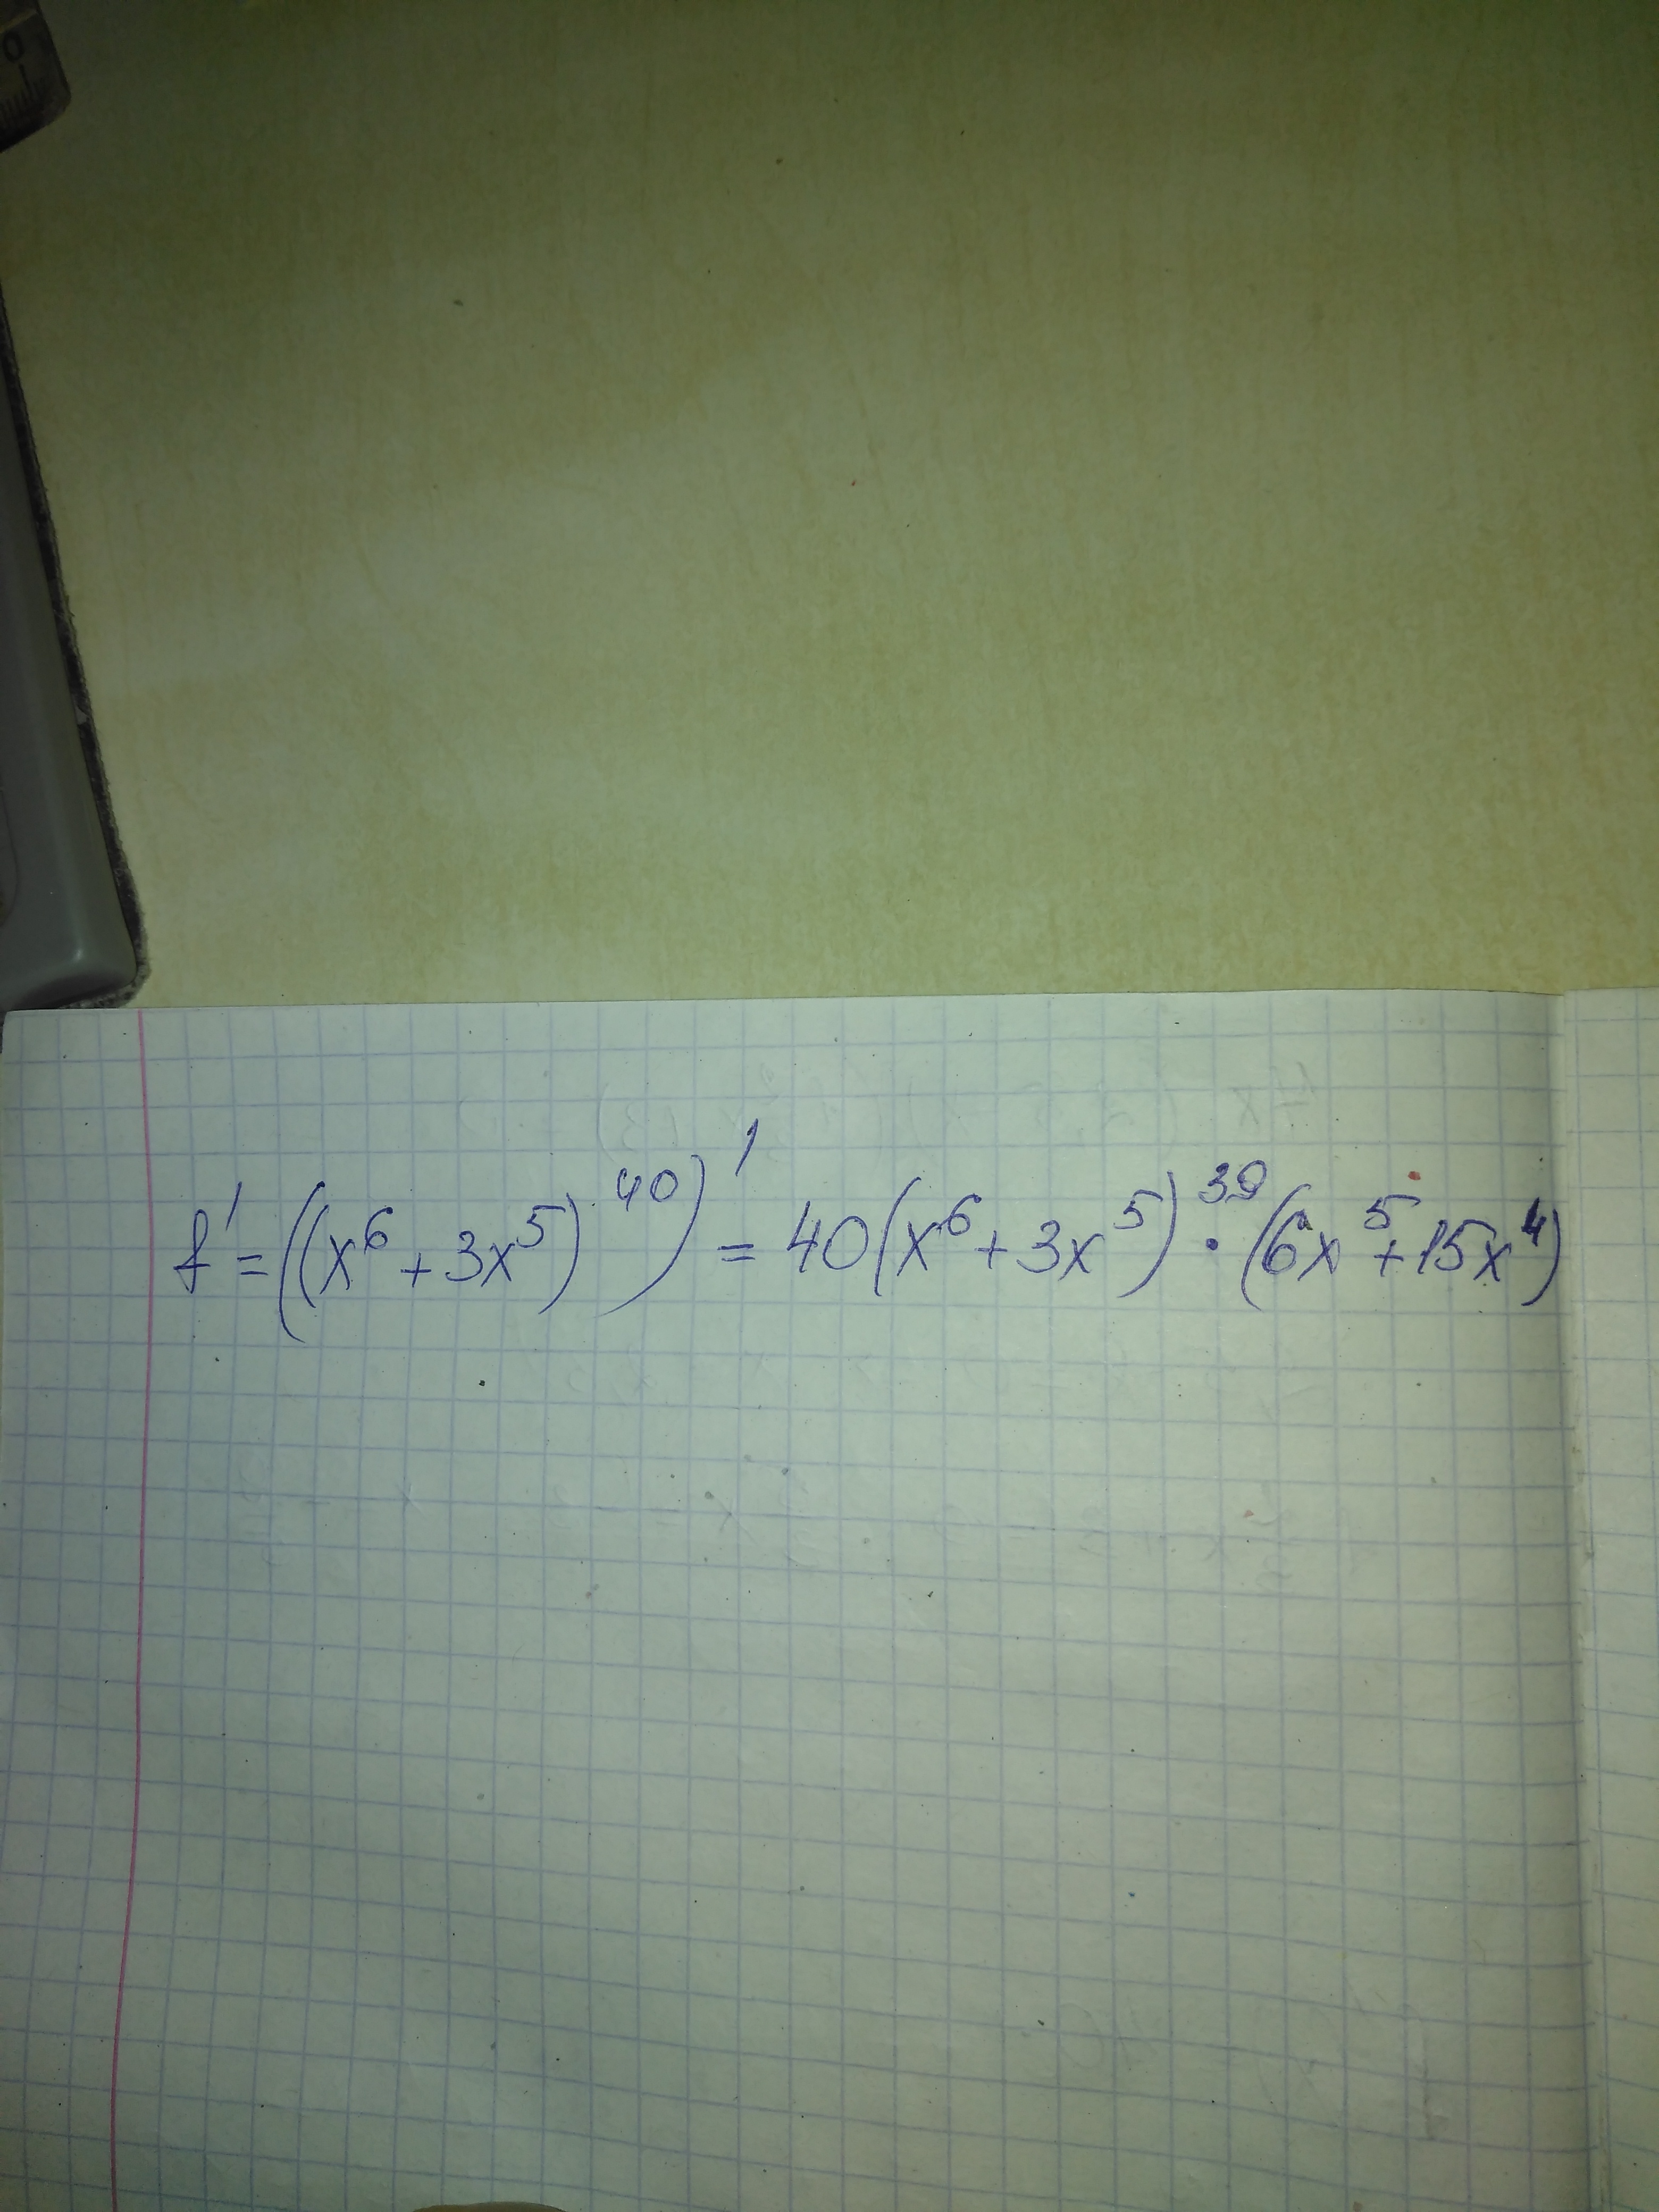 f' = ((x⁶ + 3x⁵)⁴⁰)' = 40(x⁶ + 3x⁵)³⁹ · (6x⁵ + 15x⁴)